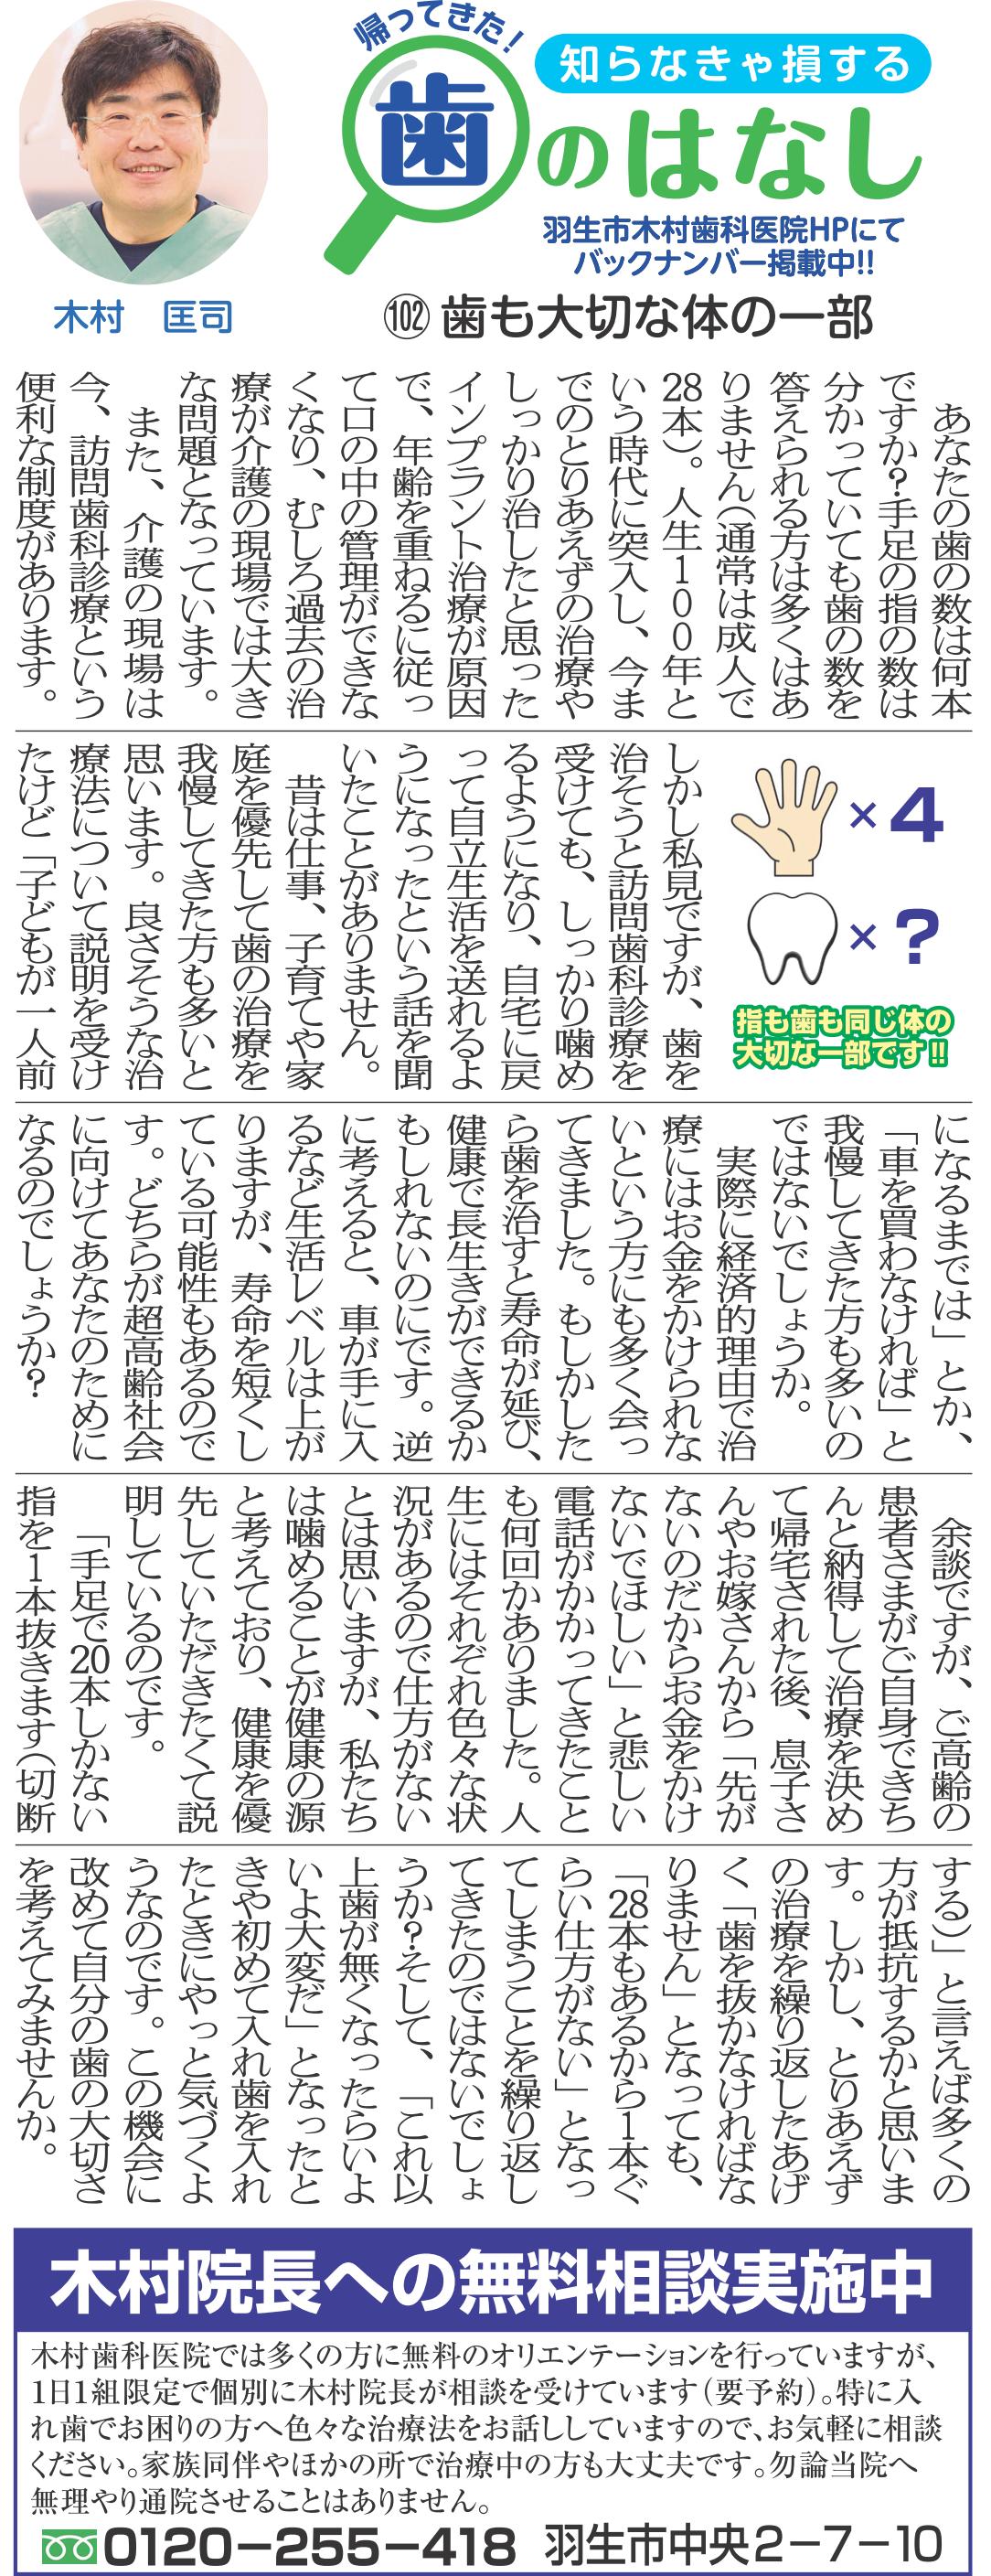 帰ってきた!
知らなきゃ損する
歯のはなし
羽生市木村歯科医院HPにて
バックナンバー掲載中!!
木村　匡司
102 歯も大切な体の一部
　あなたの歯の数は何本
ですか?手足の指の数は
分かっていても歯の数を
答えられる方は多くはあ
りません(通常は成人で
28本)。人生100年と
いう時代に突入し、今ま
でのとりあえずの治療や
しっかり治したと思った
インプラント治療が原因
で、年齢を重ねるに従っ
て口の中の管理ができな
くなり、むしろ過去の治
療が介護の現場では大き
な問題となっています。
　また、介護の現場は
今、訪問歯科診療という
便利な制度があります。
×4
×?
指も歯も同じ体の
大切な一部です!!
しかし私見ですが、歯を
治そうと訪問歯科診療を
受けても、しっかり噛め
るようになり、自宅に戻
って自立生活を送れるよ
うになったという話を聞
いたことがありません。
　昔は仕事、子育てや家
庭を優先して歯の治療を
我慢してきた方も多いと
思います。良さそうな治
療法について説明を受け
たけど「子どもが一人前
になるまでは」とか、
「車を買わなければ」と
我慢してきた方も多いの
ではないでしょうか。
　実際に経済的理由で治
療にはお金をかけられな
いという方にも多く会っ
てきました。もしかした
ら歯を治すと寿命が延び、
健康で長生きができるか
もしれないのにです。逆
に考えると、車が手に入
るなど生活レベルは上が
りますが、寿命を短くし
ている可能性もあるので
す。どちらが超高齢社会
に向けてあなたのために
なるのでしょうか?
　余談ですが、ご高齢の
患者さまがご自身できち
んと納得して治療を決め
て帰宅された後、息子さ
んやお嫁さんから「先が
ないのだからお金をかけ
ないでほしい」と悲しい
電話がかかってきたこと
も何回かありました。人
生にはそれぞれ色々な状
況があるので仕方がない
とは思いますが、私たち
は噛めることが健康の源
と考えており、健康を優
先していただきたくて説
明しているのです。
　「手足で20本しかない
指を1本抜きます(切断
する)」と言えば多くの
方が抵抗するかと思いま
す。しかし、とりあえず
の治療を繰り返したあげ
く「歯を抜かなければな
りません」となっても、
「28本もあるから1本ぐ
らい仕方がない」となっ
てしまうことを繰り返し
てきたのではないでしょ
うか?そして、「これ以
上歯が無くなったらいよ
いよ大変だ」となったと
きや初めて入れ歯を入れ
たときにやっと気づくよ
うなのです。この機会に
改めて自分の歯の大切さ
を考えてみませんか。
木村院長への無料相談実施中
木村歯科医院では多くの方に無料のオリエンテーションを行っていますが、
1日1組限定で個別に木村院長が相談を受けています(要予約)。特に入
れ歯でお困りの方へ色々な治療法をお話ししていますので、お気軽に相談
ください。家族同伴やほかの所で治療中の方も大丈夫です。勿論当院へ
無理やり通院させることはありません。
0120-255-418　羽生市中央2-7-10